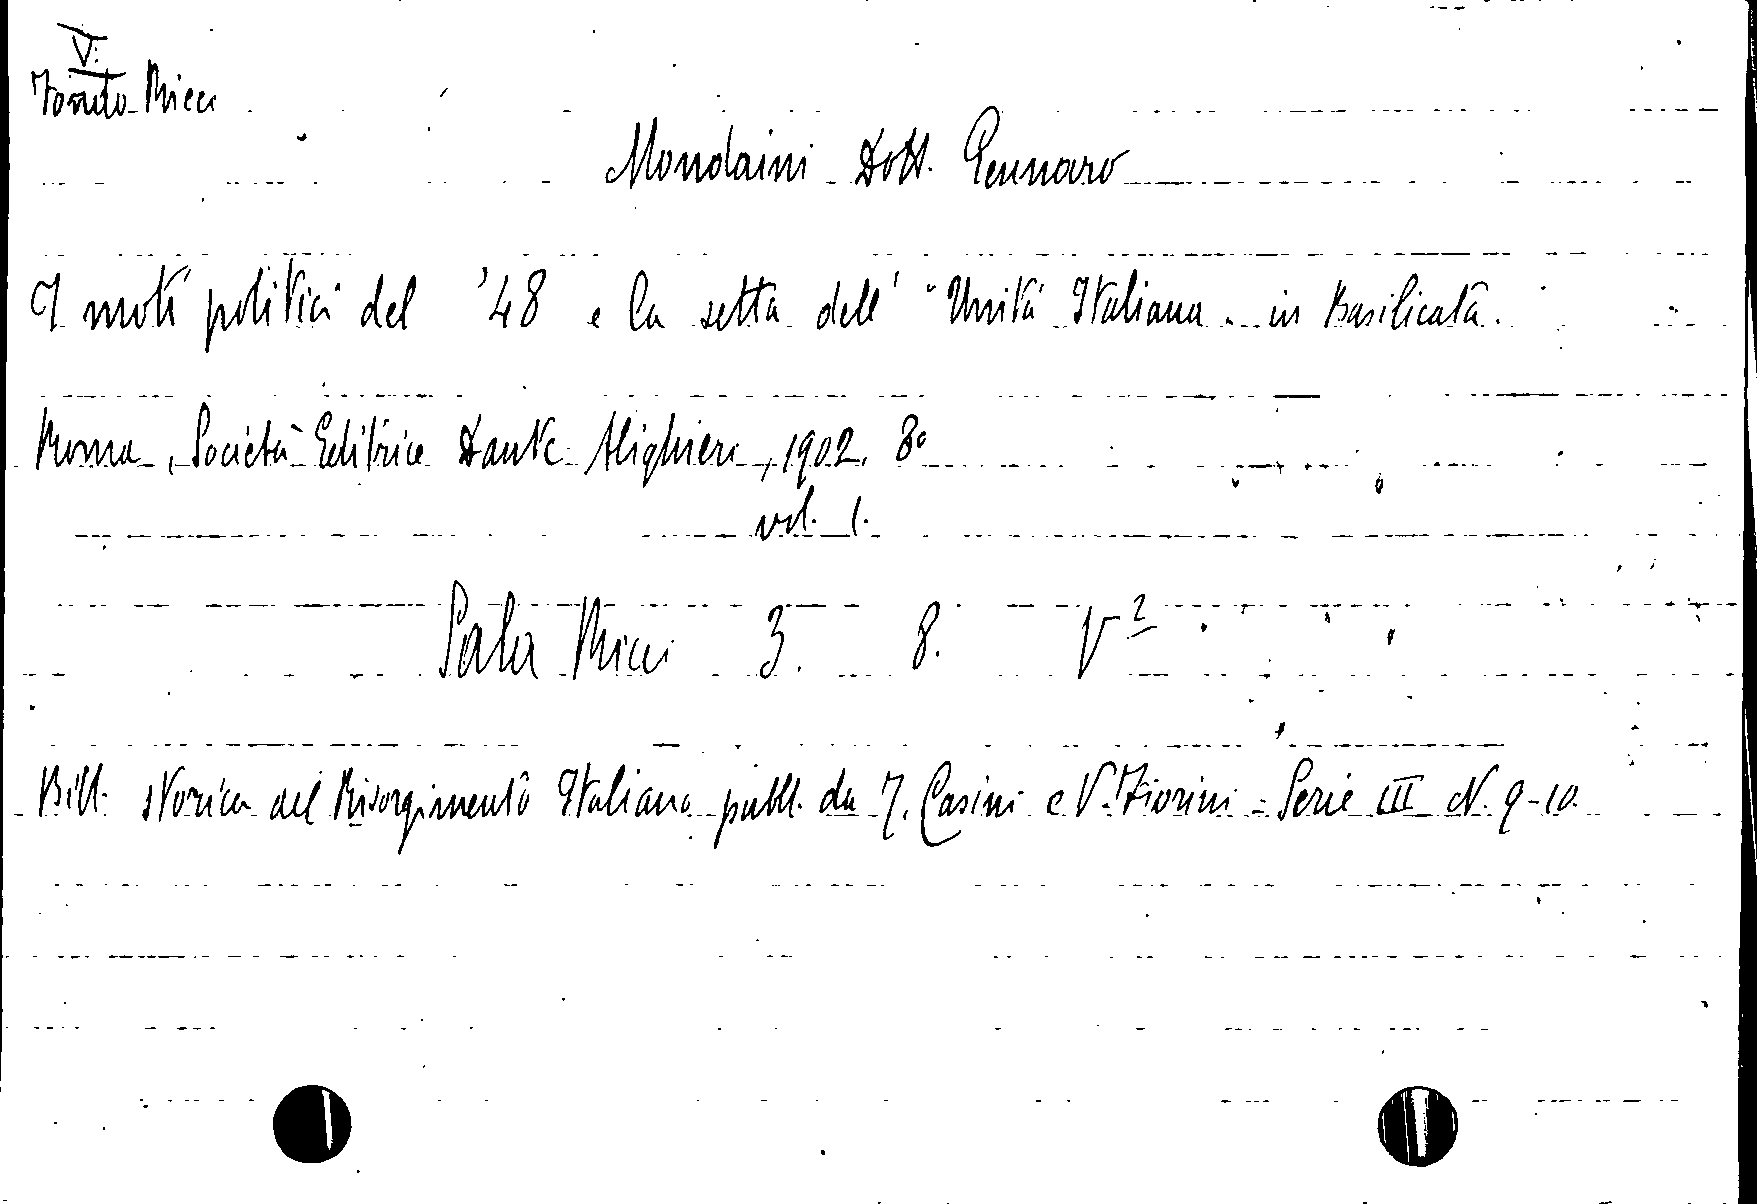 V.
Fondo Ricci
Mondaini Dott. Gennaro
I moti politici del '48 e la setta dell' "Unità Italiana" in Basilicata.
Roma, Società Editrice Dante Alighieri, 1902. 8°
vol. 1.
Sala Ricci 3. 8. V²
Bibl. storica del Risorgimento Italiano pubbl. da T. Casini e V. Fiorini - Serie III N. 9-10.